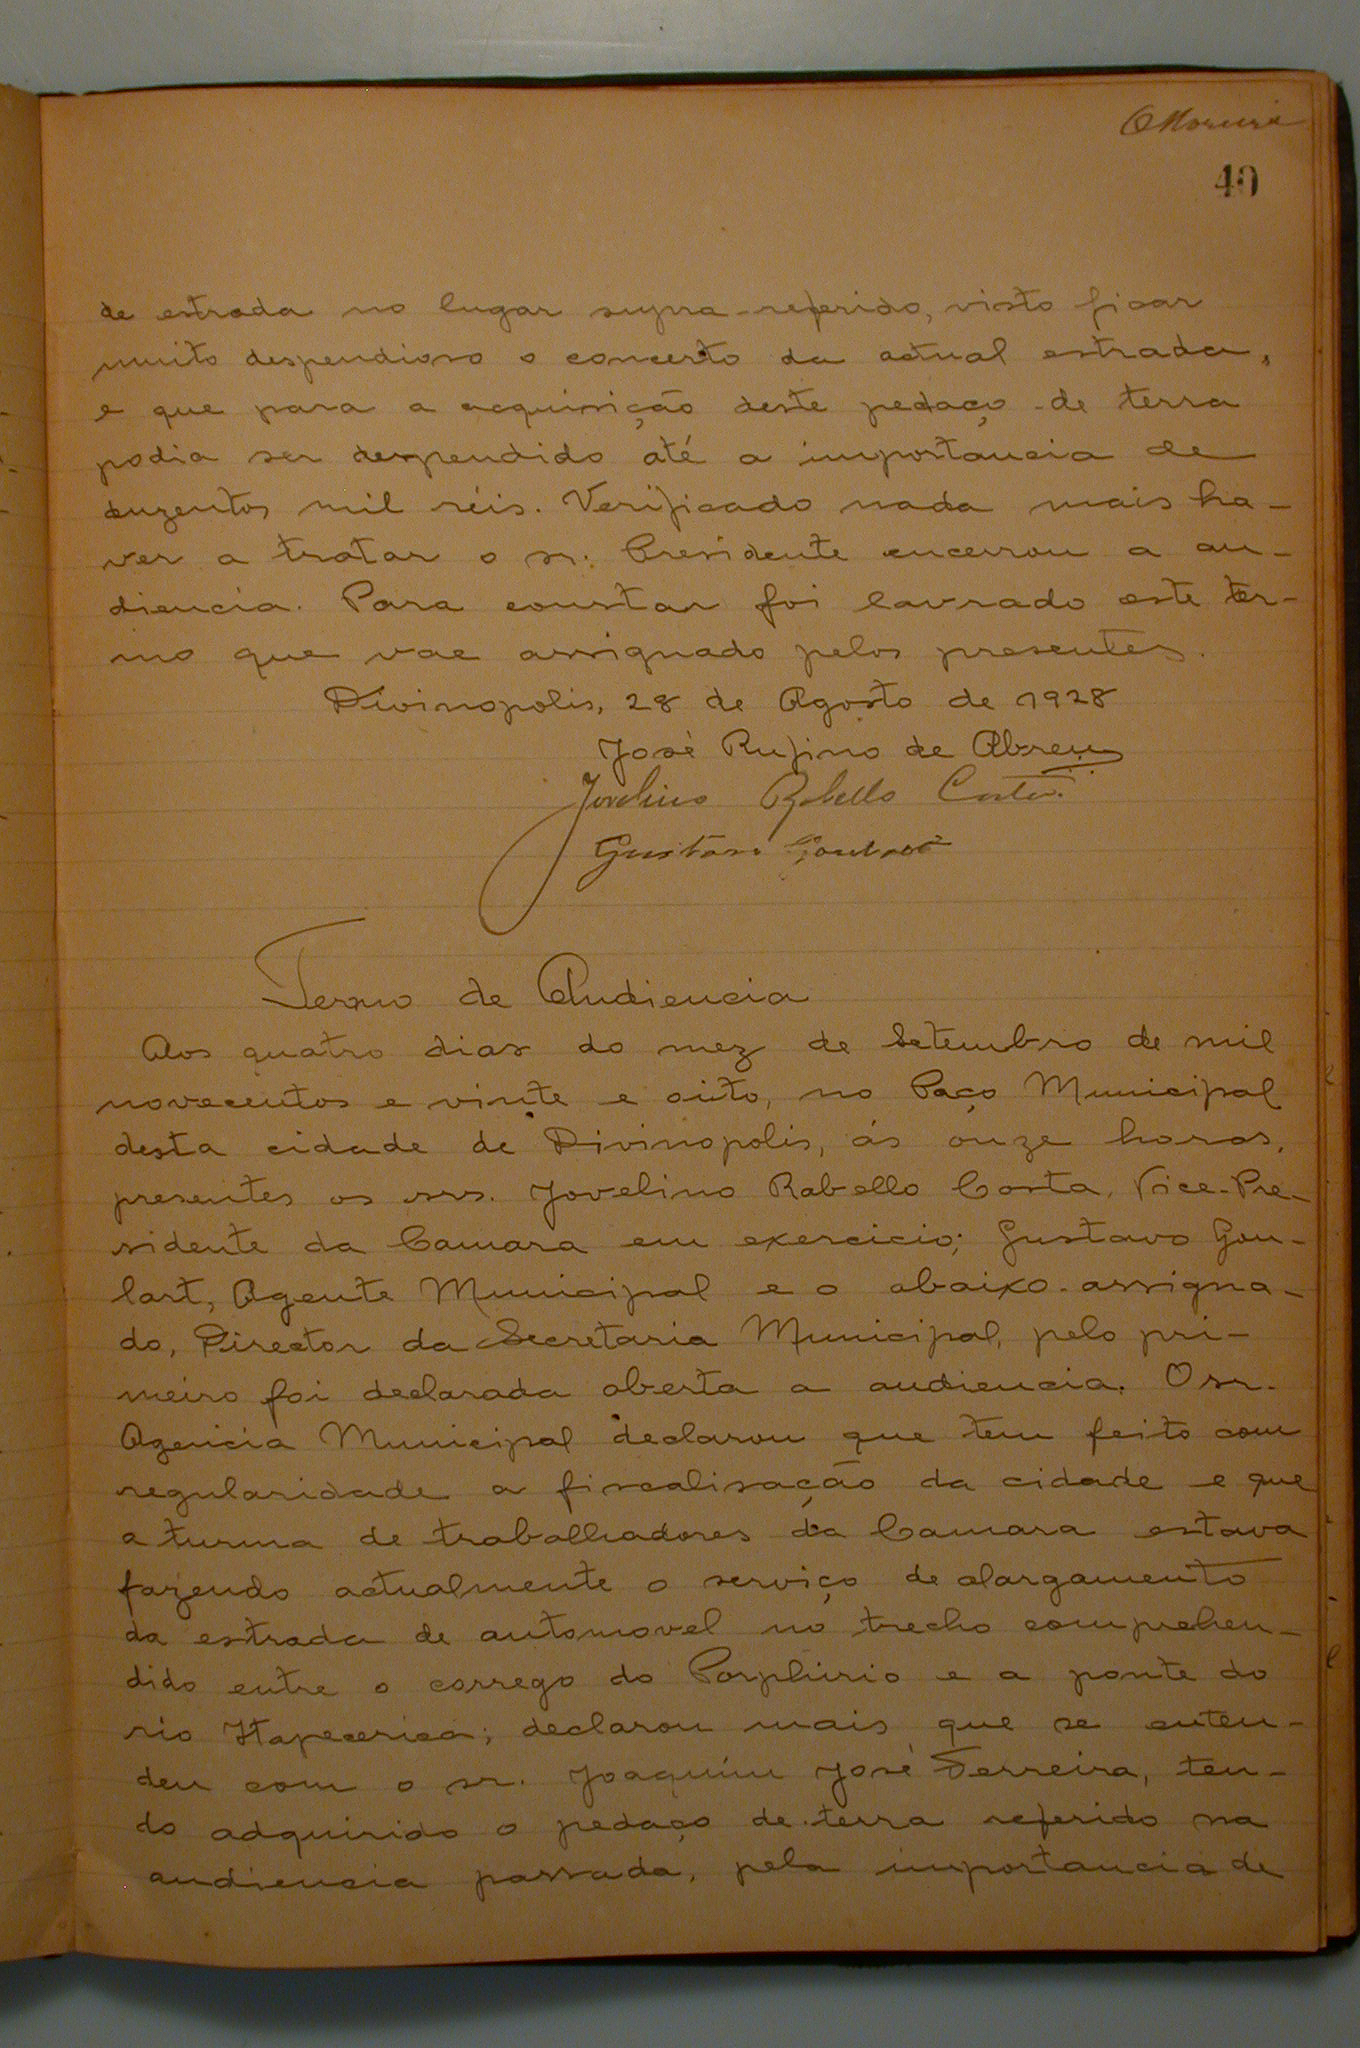 OMoreira
40
de estrada no lugar supra-referido, visto ficar
muito despendioso o concerto da actual estrada,
e que para a acquisição deste pedaço de terra
podia ser despendido até a importancia de
duzentos mil réis. Verificado nada mais ha-
ver a tratar o sr. Presidente encerrou a au-
diencia. Para constar foi lavrado este ter-
mo que vae assignado pelos presentes.
Divinopolis, 28 de Agosto de 1928
José Rufino de Abreu
Jovelino Rabello Costa.
Gustavo Goulart
Termo de Audiencia
Aos quatro dias do mez de Setembro de mil
novecentos e vinte e oito, no Paço Municipal
desta cidade de Divinopolis, ás onze horas,
presentes os srs. Jovelino Rabello Costa, Vice-Pre-
sidente da Camara em exercicio; Gustavo Gou-
lart, Agente Municipal e o abaixo-assigna-
do, Director da Secretaria Municipal, pelo pri-
meiro foi declarada aberta a audiencia. O sr.
Agencia Municipal declarou que tem feito com
regularidade a fiscalisação da cidade e que
a turma de trabalhadores da Camara estava
fazendo actualmente o serviço de alargamento
da estrada de automovel no trecho comprehen-
dido entre o corrego do Porphirio e a ponte do
rio Itapecerica; declarou mais que se enten-
deu com o sr. Joaquim José Ferreira, ten-
do adquirido o pedaço de terra referido na
audiencia passada, pela importancia de